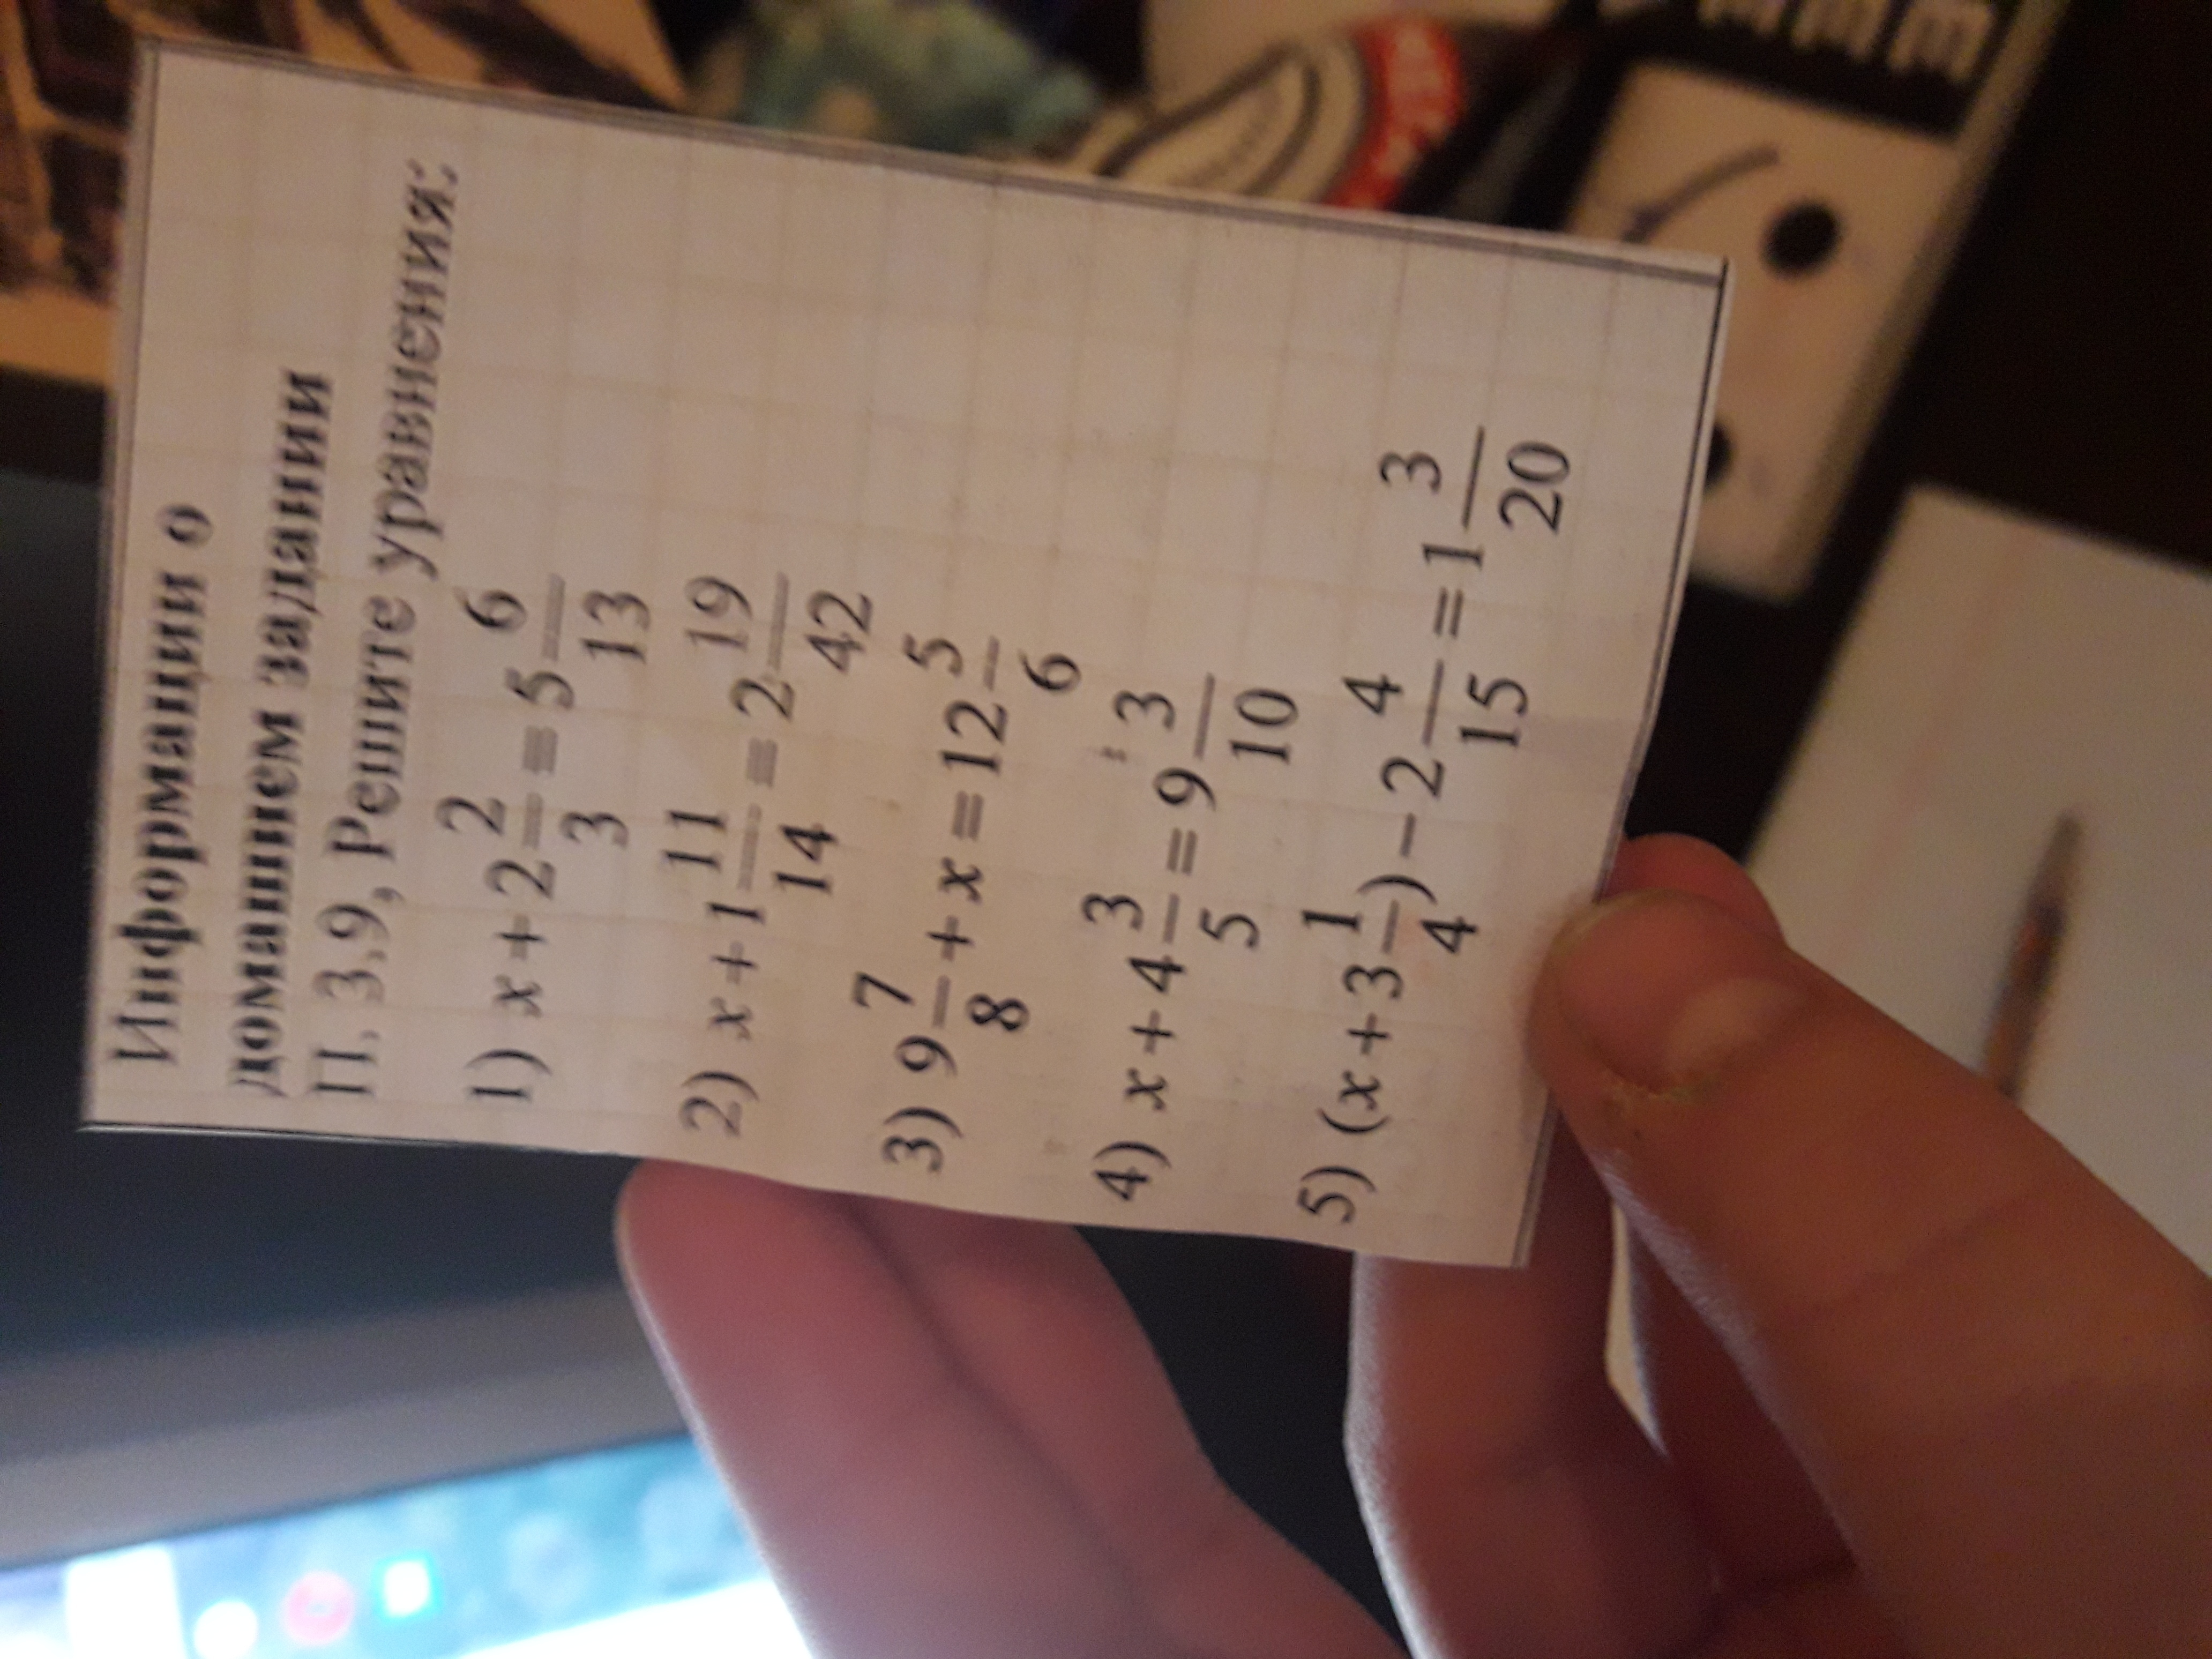 Информации о
домашнем задании
П. 3.9, Решите уравнения:
1) x + 2 2/3 = 5 6/13
2) x + 1 11/14 = 2 19/42
3) 9 7/8 + x = 12 5/6
4) x + 4 3/5 = 9 3/10
5) (x + 3 1/4) − 2 4/15 = 1 3/20